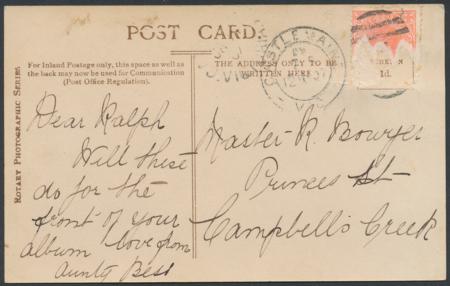 POST CARD.
For Inland Postage only, this space as well as
the back may now be used for Communication
(Post Office Regulation).
THE ADDRESS ONLY TO BE
WRITTEN HERE
CASTLEMAINE
VIC
1d.
ROTARY PHOTOGRAPHIC SERIES
Dear Ralph
Will these
do for the
front of your
album love from
Aunty Bess
Master R. Bowyer
Princes St
Campbell's Creek